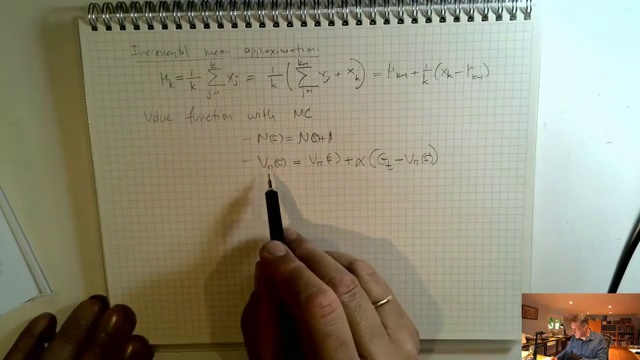 Incremental mean approximation:
μ_k = 1/k Σ_{j=1}^{k} x_j = 1/k ( Σ_{j=1}^{k-1} x_j + x_k ) = μ_{k-1} + 1/k ( x_k - μ_{k-1} )
Value function with MC
- N(s) = N(s)+1
- V_π(s) = V_π(s) + α ( G_t - V_π(s) )